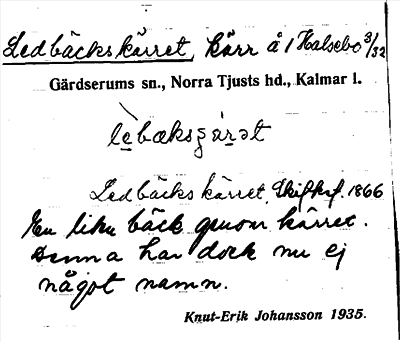 Ledbäckskärret, kärr å 1 Halsebo 3/32
Gärdserums sn., Norra Tjusts hd., Kalmar l.
Ledbäckskärret, Skifkrf. 1866
En liten bäck genom kärret.
Denna har dock nu ej
något namn.
Knut-Erik Johansson 1935.